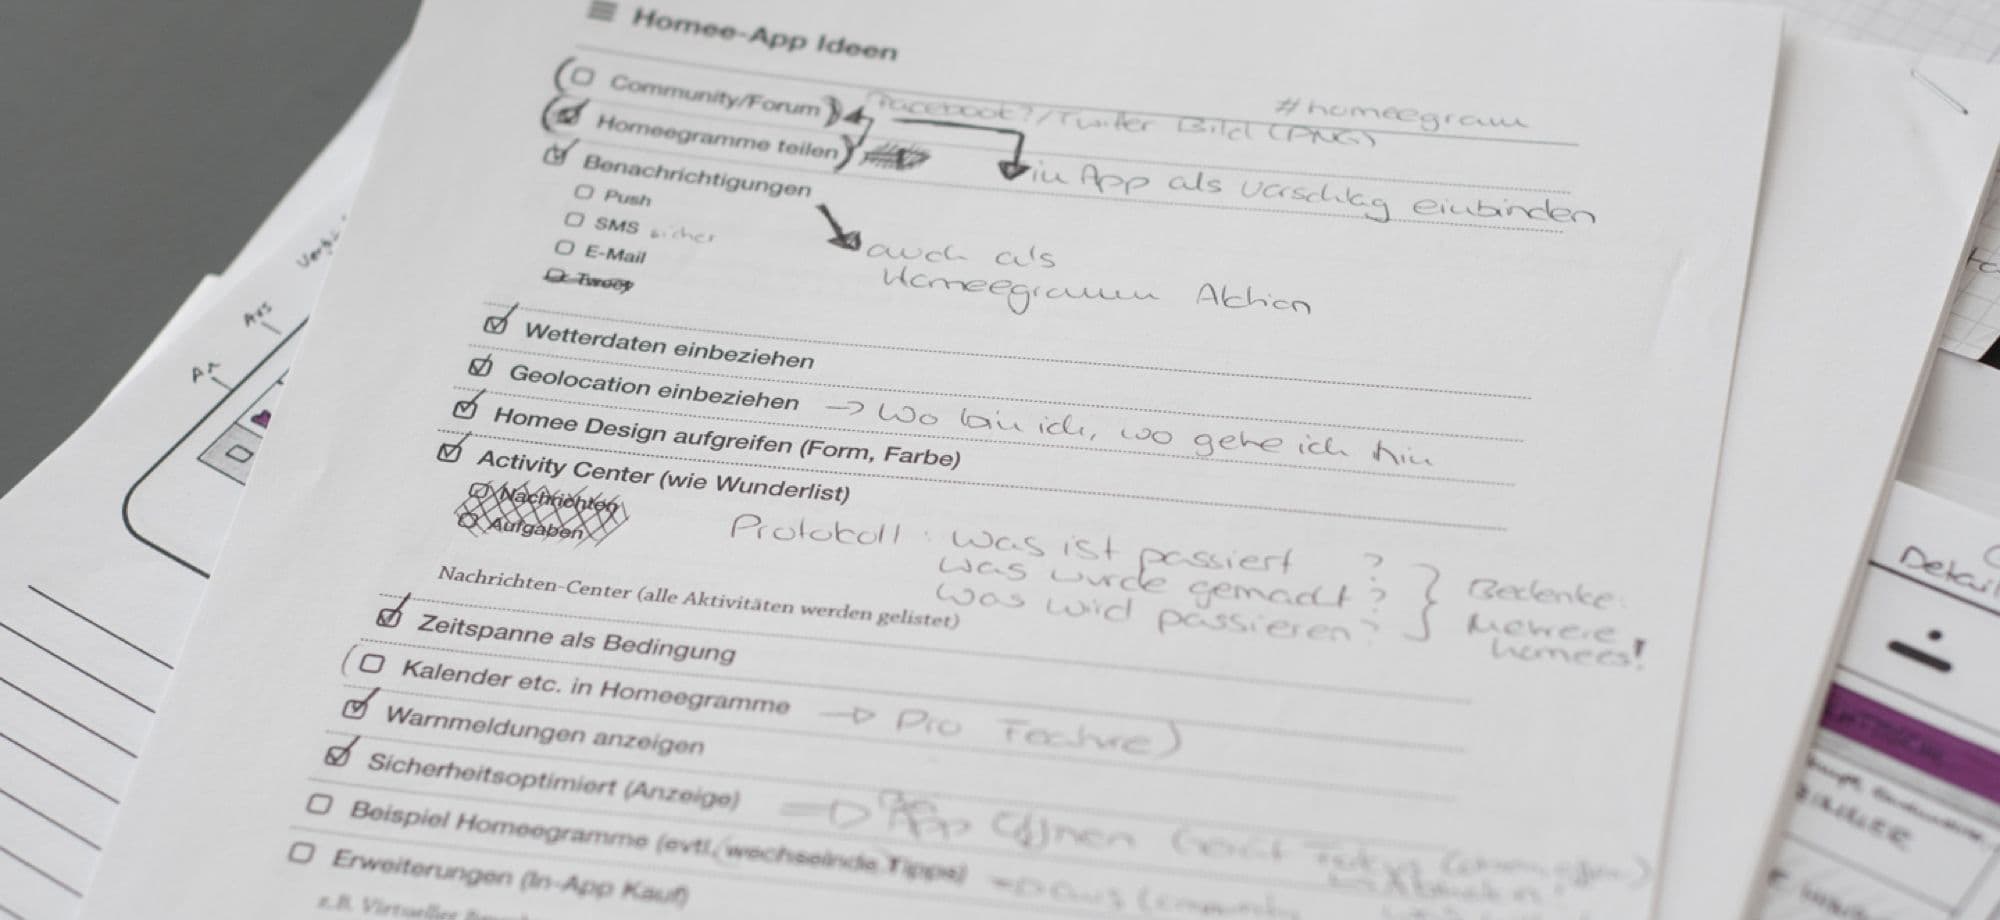 Homee-App Ideen
Community/Forum
Facebook?/Twitter Bild (PNG)
#homeegram
Homeegramme teilen
in App als Vorschlag einbinden
Benachrichtigungen
Push
SMS sicher
E-Mail
auch als
Homeegramm Aktion
Wetterdaten einbeziehen
Geolocation einbeziehen → Wo bin ich, wo gehe ich hin
Homee Design aufgreifen (Form, Farbe)
Activity Center (wie Wunderlist)
Nachrichten
Aufgaben
Protokoll: Was ist passiert?
Was wurde gemacht?
Was wird passieren?
Bedenke:
Mehrere
homees!
Nachrichten-Center (alle Aktivitäten werden gelistet)
Zeitspanne als Bedingung
(Kalender etc. in Homeegramme → Pro Feature)
Warnmeldungen anzeigen
Sicherheitsoptimiert (Anzeige)
App öffnen
Beispiel Homeegramme (evtl. wechselnde Tipps)
Community
Erweiterungen (In-App Kauf)
z.B. Virtueller
Aus
Detail